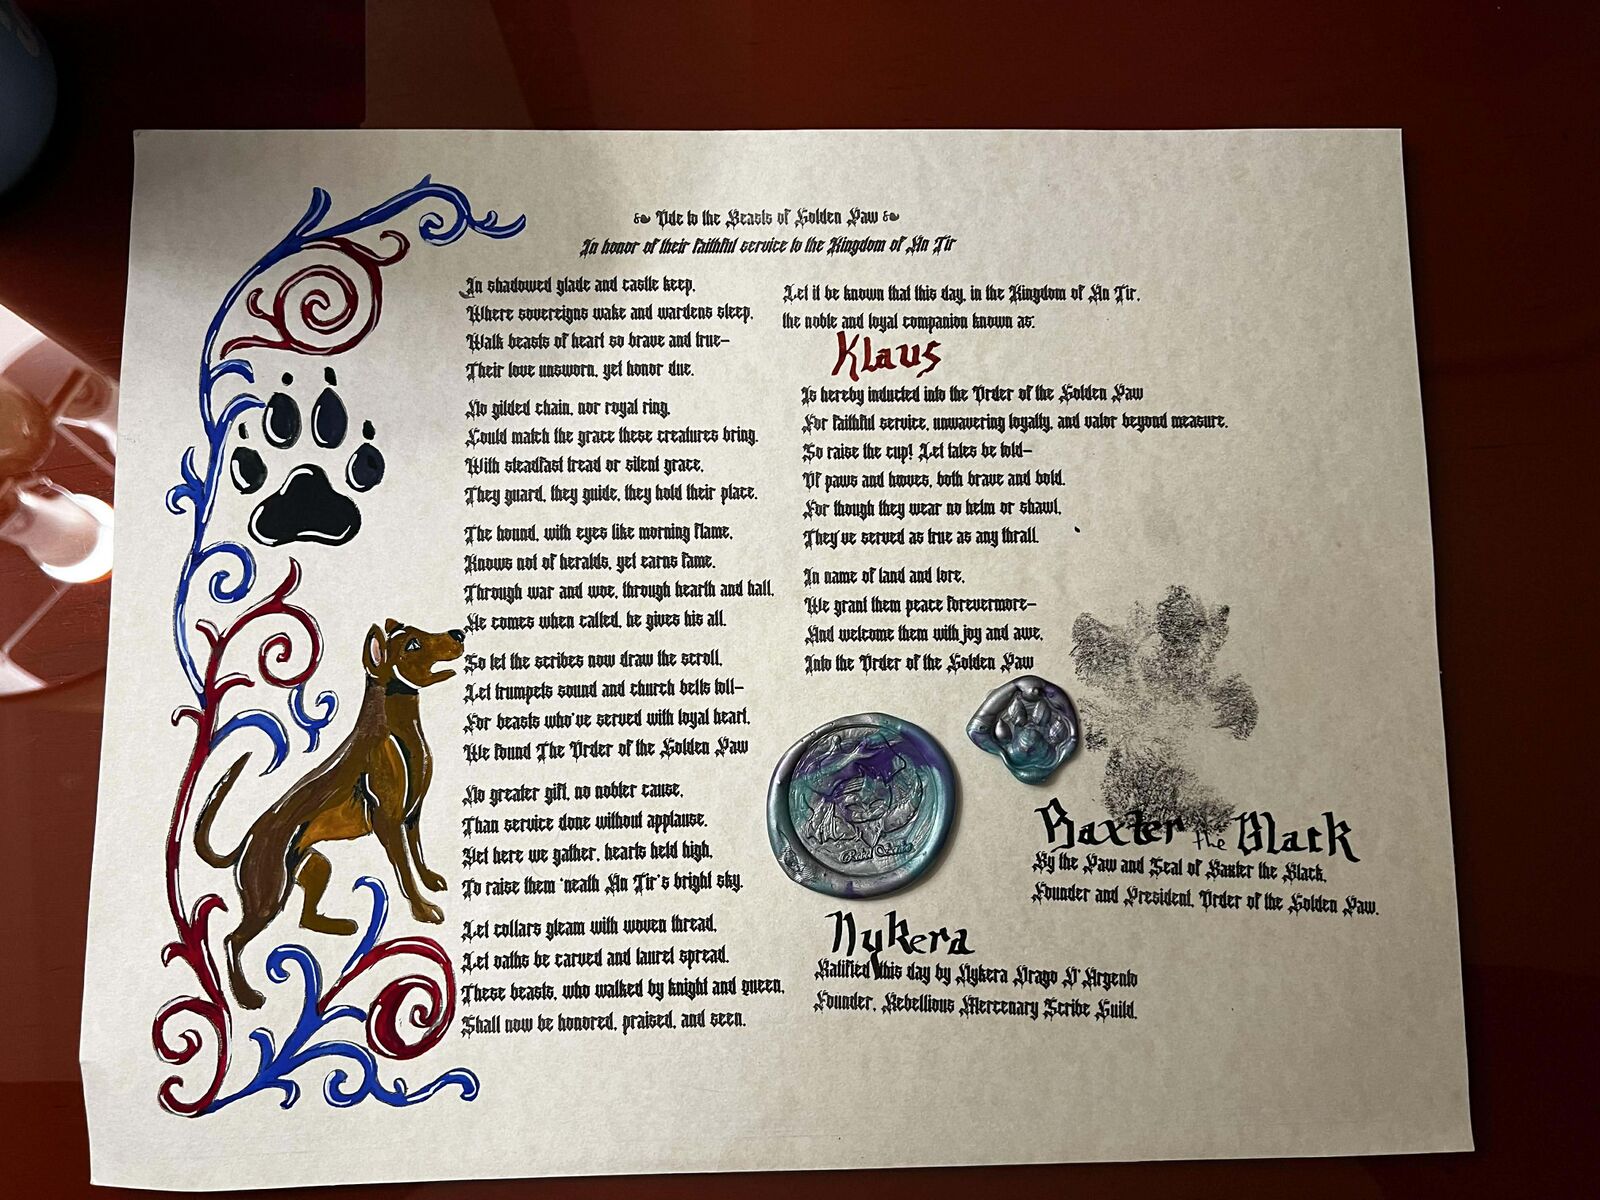 Ode to the Beasts of Golden Paw
In honor of their faithful service to the Kingdom of An Tir
In shadowed glade and castle keep,
Where sovereigns wake and wardens sleep,
Walk beasts of heart so brave and true—
Their love unsworn, yet honor due.
No gilded chain, nor royal ring,
Could match the grace these creatures bring.
With steadfast tread or silent grace,
They guard, they guide, they hold their place.
The hound, with eyes like morning flame,
Knows not of heralds, yet earns fame.
Through war and woe, through hearth and hall,
He comes when called, he gives his all.
So let the scribes now draw the scroll,
Let trumpets sound and church bells toll—
For beasts who've served with loyal heart,
We found The Order of the Golden Paw
No greater gift, no nobler cause,
Than service done without applause.
Yet here we gather, hearts held high,
To raise them 'neath An Tir's bright sky.
Let collars gleam with woven thread,
Let oaths be carved and laurel spread.
These beasts, who walked by knight and queen,
Shall now be honored, praised, and seen.
Let it be known that this day, in the Kingdom of An Tir,
the noble and loyal companion known as:
Klaus
Is hereby inducted into the Order of the Golden Paw
For faithful service, unwavering loyalty, and valor beyond measure.
So raise the cup! Let tales be told—
Of paws and hooves, both brave and bold.
For though they wear no helm or shawl,
They've served as true as any thrall.
In name of land and lore,
We grant them peace forevermore—
And welcome them with joy and awe,
Into the Order of the Golden Paw
Baxter the Black
By the Paw and Seal of Baxter the Black,
Founder and President, Order of the Golden Paw.
Nykera
Ratified this day by Nykera Drago D'Argento
Founder, Rebellious Mercenary Scribe Guild.